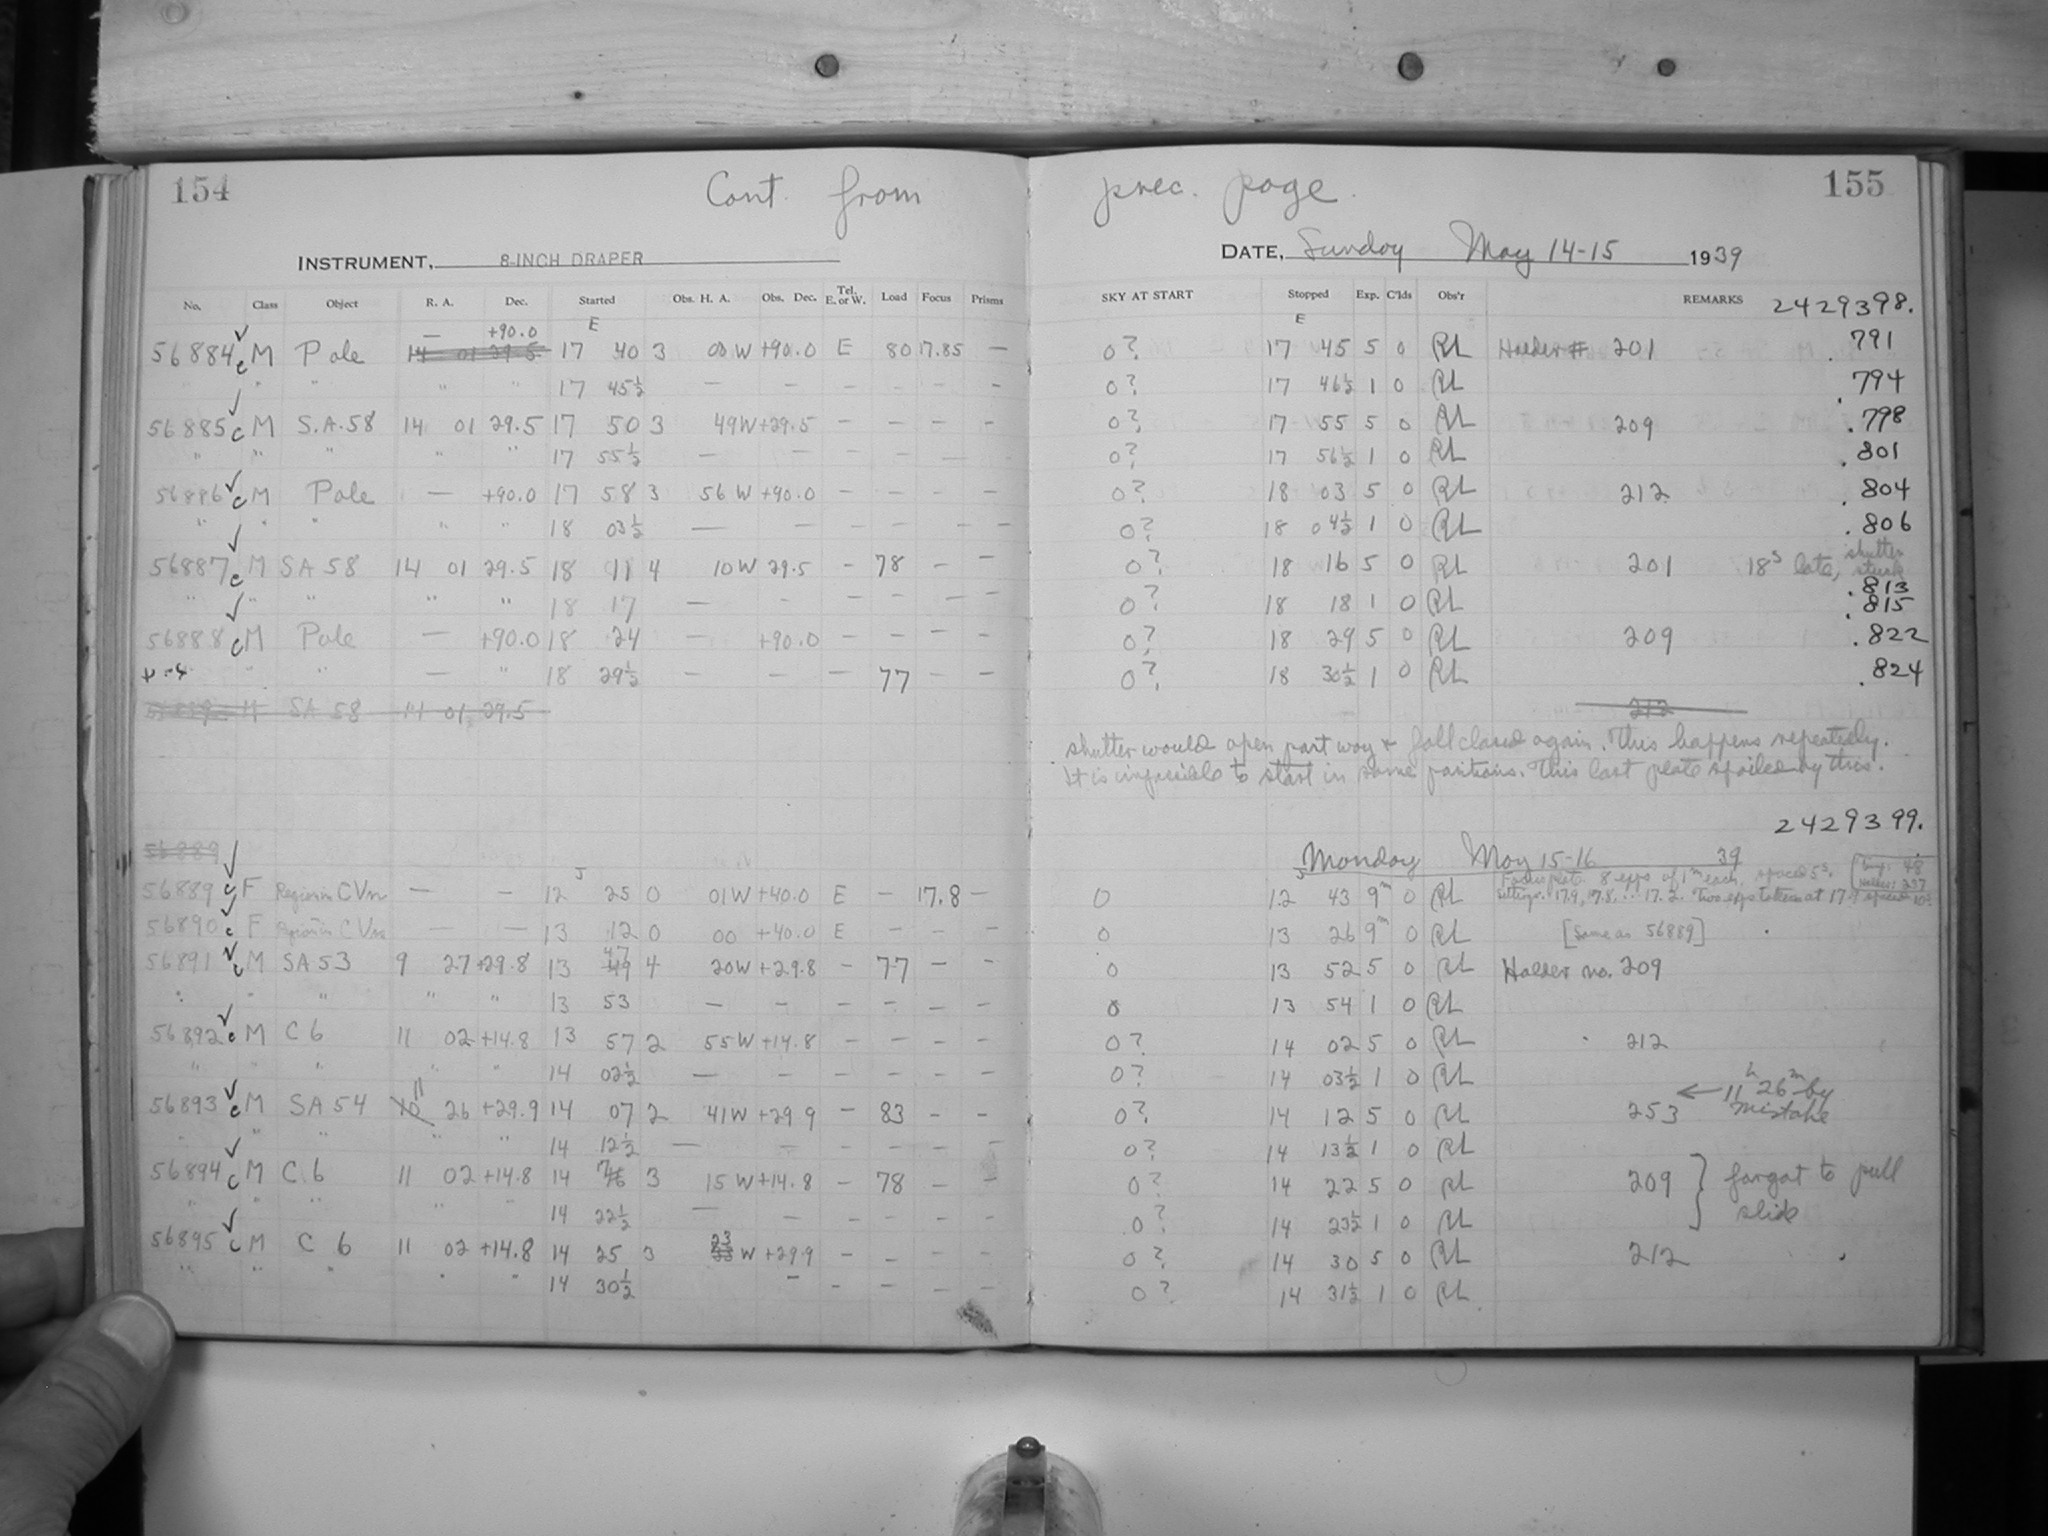 154 Cont. from prec. page. 155
INSTRUMENT, 8-INCH DRAPER DATE, Sunday May 14-15 1939
No. Class Object R. A. Dec. Started Obs. H. A. Obs. Dec. Tel. E. or W. Load Focus Prisms SKY AT START Stopped Exp. C'lds Obs'r REMARKS 2429398.
— +90.0 E E
56884 c M Pole 14 01 29.5 17 40 3 00 W +90.0 E 80 17.85 — 0? 17 45 5 0 RL Holder # 201 .791
" " " " " 17 45½ — — — — — — 0? 17 46½ 1 0 RL .794
56885 c M S.A.58 14 01 29.5 17 50 3 49W +29.5 — — — — 0? 17 55 5 0 RL 209 .798
" " " " " 17 55½ — — — — — — 0? 17 56½ 1 0 RL .801
56886 c M Pole — +90.0 17 58 3 56 W +90.0 — — — — 0? 18 03 5 0 RL 212 .804
" " " " " 18 03½ — — — — — — 0? 18 04½ 1 0 RL .806
56887 c M SA 58 14 01 29.5 18 11 4 10W 29.5 — 78 — — 0? 18 16 5 0 RL 201 18s late, shutter stuck .813
" " " " " 18 17 — — — — — — 0? 18 18 1 0 RL .815
56888 c M Pole — +90.0 18 24 — +90.0 — — — — 0? 18 29 5 0 RL 209 .822
" " — " 18 29½ — — — 77 — — 0? 18 30½ 1 0 RL .824
56889 c M SA 58 14 01 29.5 212
shutter would open part way + fall closed again. This happens repeatedly.
It is impossible to start in some positions. This last plate spoiled by this.
2429399.
56889 Monday May 15-16 39
J J Focus plate. 8 exps of 1m each, spaced 5s. Temp. 48
56889 c F Region CVn — — 12 25 0 01W +40.0 E — 17.8 — 0 12 43 9m 0 RL settings: 17.9, 17.8, ... 17.2. Two exps taken at 17.9 spaced 10s Holder: 237
56890 c F Region CVn — — 13 12 0 00 +40.0 E 0 13 26 9m 0 RL [Same as 56889]
56891 c M SA 53 9 27 +29.8 13 49 47 4 20W +29.8 — 77 — — 0 13 52 5 0 RL Holder no. 209
" " " " " 13 53 — — — — — — 0 13 54 1 0 RL
56892 c M C 6 11 02 +14.8 13 57 2 55W +14.8 — — — — 0? 14 02 5 0 RL 212
" " " " 14 02½ — — — — — — 0? 14 03½ 1 0 RL
56893 c M SA 54 10 11 26 +29.9 14 07 2 41W +29.9 — 83 — — 0? 14 12 5 0 RL 253 ← 11h 26m by mistake
" " " " 14 12½ — — — — — — 0? 14 13½ 1 0 RL
56894 c M C 6 11 02 +14.8 14 17 3 15 W +14.8 — 78 — — 0? 14 22 5 0 RL 209 } forgot to pull slide
" " " " " 14 22½ — — — — — — 0? 14 23½ 1 0 RL
56895 c M C 6 11 02 +14.8 14 25 3 23 W +29.9 — — — — 0? 14 30 5 0 RL 212
" " " " " 14 30½ — — — — — 0? 14 31½ 1 0 RL